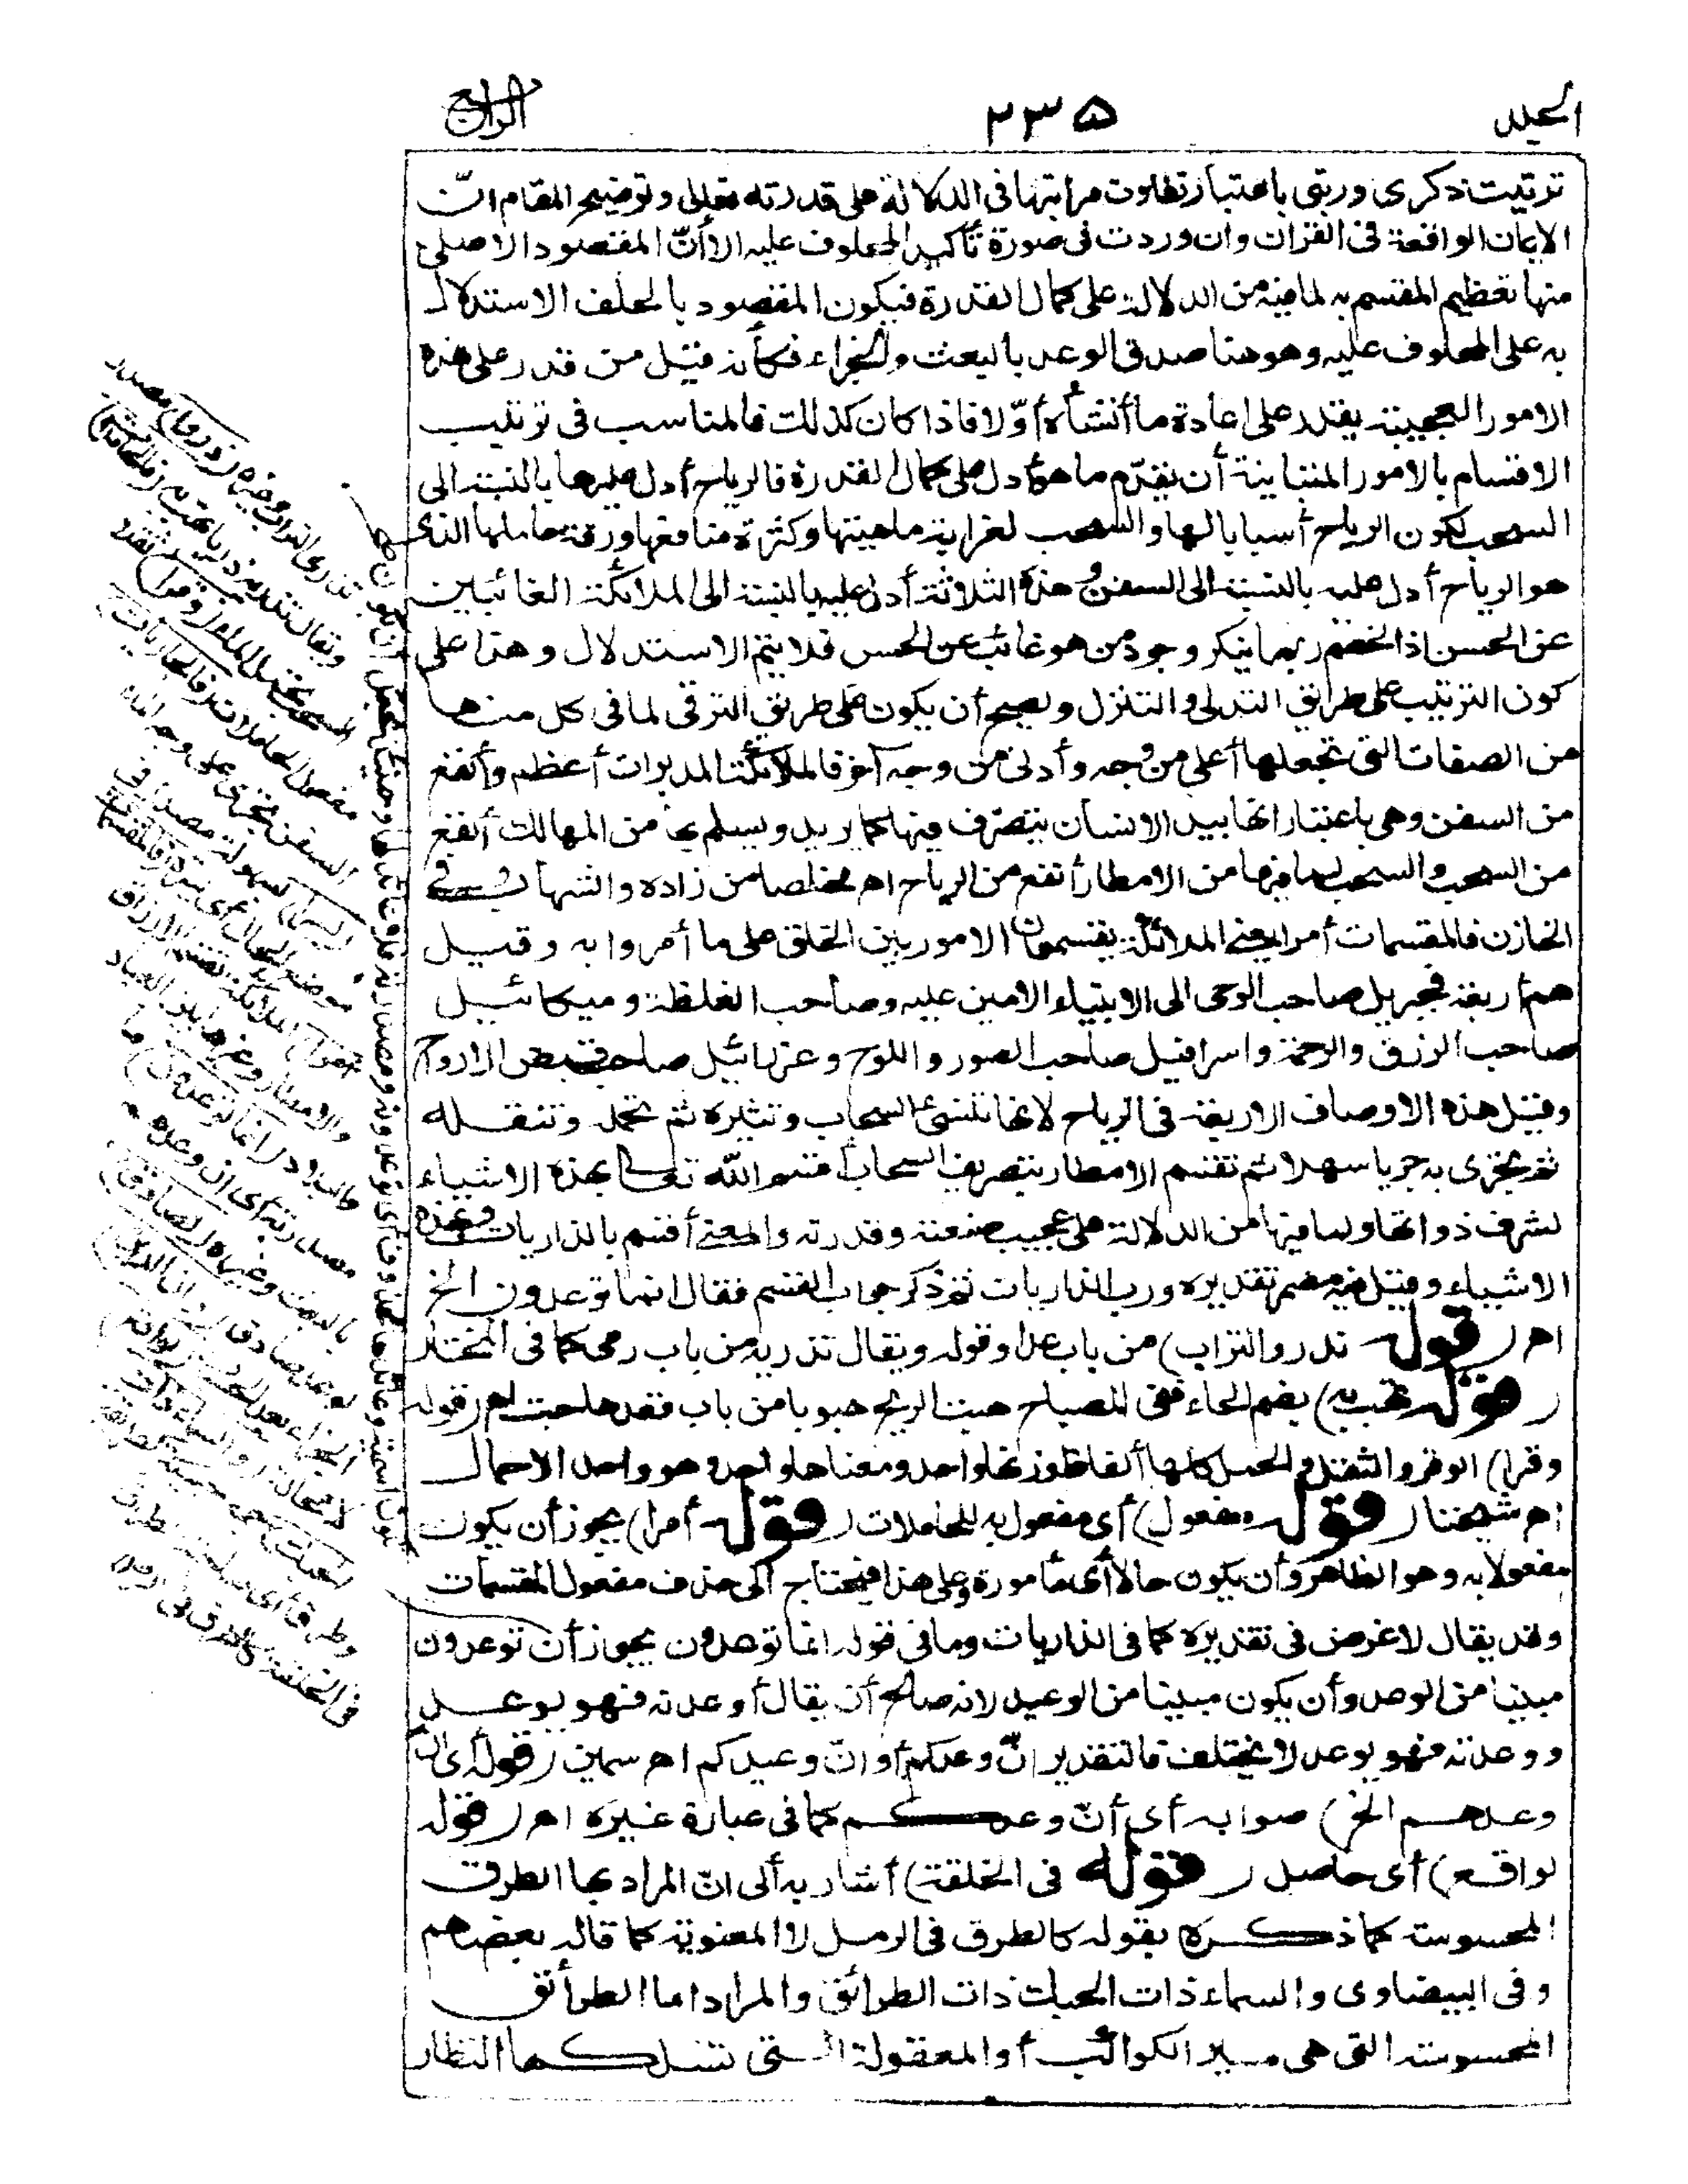 الجلد
٢٣٥
الرابع
ترتيب ذكرى ورتبى باعتبار تفاوت مراتبها فى الدلالة على قدرته تعالى وتوضيح المقام انّ
الايمان الواقعة فى القران وان وردت فى صورة تأكيد المحلوف عليه الا أنّ المقصود الاصلى
منها تعظيم المقسم به لما فيه من الدلالة على كمال القدرة فيكون المقصود بالحلف الاستدلال
به على المحلوف عليه وهو هنا صدق الوعد بالبعث والجزاء فكأنه قيل من قدر على هذه
الامور العجيبة يقدر على اعادة ما أنشأه أوّلا فاذا كان كذلك فالمناسب فى ترتيب
الاقسام بالامور المتباينة أن يقدّم ما هو أدل على كمال القدرة فالرياح أدل عليها بالنسبة الى
السحب لكون الرياح أسبابا لها والسحب لغرابة ماهيتها وكثرة منافعها ورقة حاملها الذى
هو الرياح أدل عليه بالنسبة الى السفن وهذه الثلاثة أدل عليه بالنسبة الى الملائكة الغائبين
عن الحس اذ الخصم ربما ينكر وجود من هو غائب عن الحس فلا يتم الاستدلال وهذا على
كون الترتيب على طريق التدلى والتنزل ويصح أن يكون على طريق الترقى لما فى كل منها
من الصفات التى تجعلها أعلى من وجه وأدنى من وجه آخر فالملائكة المدبرات أعظم وأنفع
من السفن وهى باعتبار انها بيد الانسان يتصرّف فيها كما يريد ويسلم بها من المهالك أنفع
من السحب والسحب لما فيها من الامطار أنفع من الرياح اهـ ملخصا من زاده والشهاب وفى
الخازن فالمقسمات أمرا يعنى الملائكة يقسمون الامور بين الخلق على ما أمروا به وقيل
هم أربعة فجبريل صاحب الوحى الى الانبياء الامين عليه وصاحب الغلظة وميكائيل
صاحب الرزق والرحمة واسرافيل صاحب الصور واللوح وعزرائيل صاحب قبض الارواح
وقيل هذه الاوصاف الاربعة فى الرياح لانها تنشئ السحاب وتثيره ثم تحمله وتنقله
ثم تجرى به جريا سهلا ثم تقسم الامطار بتصريف السحاب أقسم الله تعالى بهذه الاشياء
لشرف ذواتها ولما فيها من الدلالة على عجيب صنعته وقدرته والمعنى أقسم بالذاريات وبهذه
الاشياء وقيل فيه مضمر تقديره ورب الذاريات ثم ذكر جواب القسم فقال انما توعدون الخ
اهـ (قوله تذرو التراب) من باب عدا وقوله ويقال تذريه من باب رمى كما فى المختار
(قوله تهب به) بضم الهاء ففى المصباح هبت الريح هبوبا من باب قعد هاجت اهـ (قوله
وقرا) الوقر والثقل والحمل كلها ألفاظ وزنها واحد ومعناها واحد وهو واحد الاحمال
اهـ شيخنا (قوله مفعول) أى مفعول به للحاملات (قوله أمرا) يجوز أن يكون
مفعولا به وهو الظاهر وأن يكون حالا أى مأمورة وعلى هذا فيحتاج الى حذف مفعول المقسمات
وقد يقال لا غرض فى تقديره كما فى الذاريات وما فى قوله انما توعدون يجوز أن توعدون
مبنيا من الوعد وأن يكون مبنيا من الوعيد لانه صالح أن يقال أوعدته فهو يوعد
ووعدته فهو يوعد لا يختلف فالتقدير انّ وعدكم أو انّ وعيدكم اهـ سمين (قوله أى انّ
وعدهم الخ) صوابه أى أنّ وعدكم كما فى عبارة غيره اهـ (قوله
لواقع) أى حاصل (قوله فى الخلقة) أشار به الى انّ المراد بها الطرق
المحسوسة كما ذكره بقوله كالطرق فى الرمل لا المعنوية كما قاله بعضهم
وفى البيضاوى والسماء ذات الحبك ذات الطرائق والمراد اما الطرائق
المحسوسة التى هى مسير الكواكب أو المعقولة التى تسلكها النظار
تذرى التراب وغيره (ذروا) مصدر
ويقال تذريه ذريا تهب به (فالحاملات)
السحب تحمل الماء (وقرا) ثقلا
مفعول الحاملات (فالجاريات)
السفن تجرى على وجه الماء
(يسرا) بسهولة مصدر فى
موضع الحال أى ميسرة (فالمقسمات
أمرا) الملائكة تقسم الارزاق
والامطار وغيرها بين العباد
والبلاد (انما توعدون) ما
مصدرية أى ان وعدهم
بالبعث وغيره (لصادق)
لوعد صادق (وان الدين)
الجزاء بعد الحساب (لواقع)
لا محالة (والسماء ذات
الحبك) جمع حبيكة كطريقة
وطرق أى صاحبة الطرق
فى الخلقة كالطرق فى الرمل